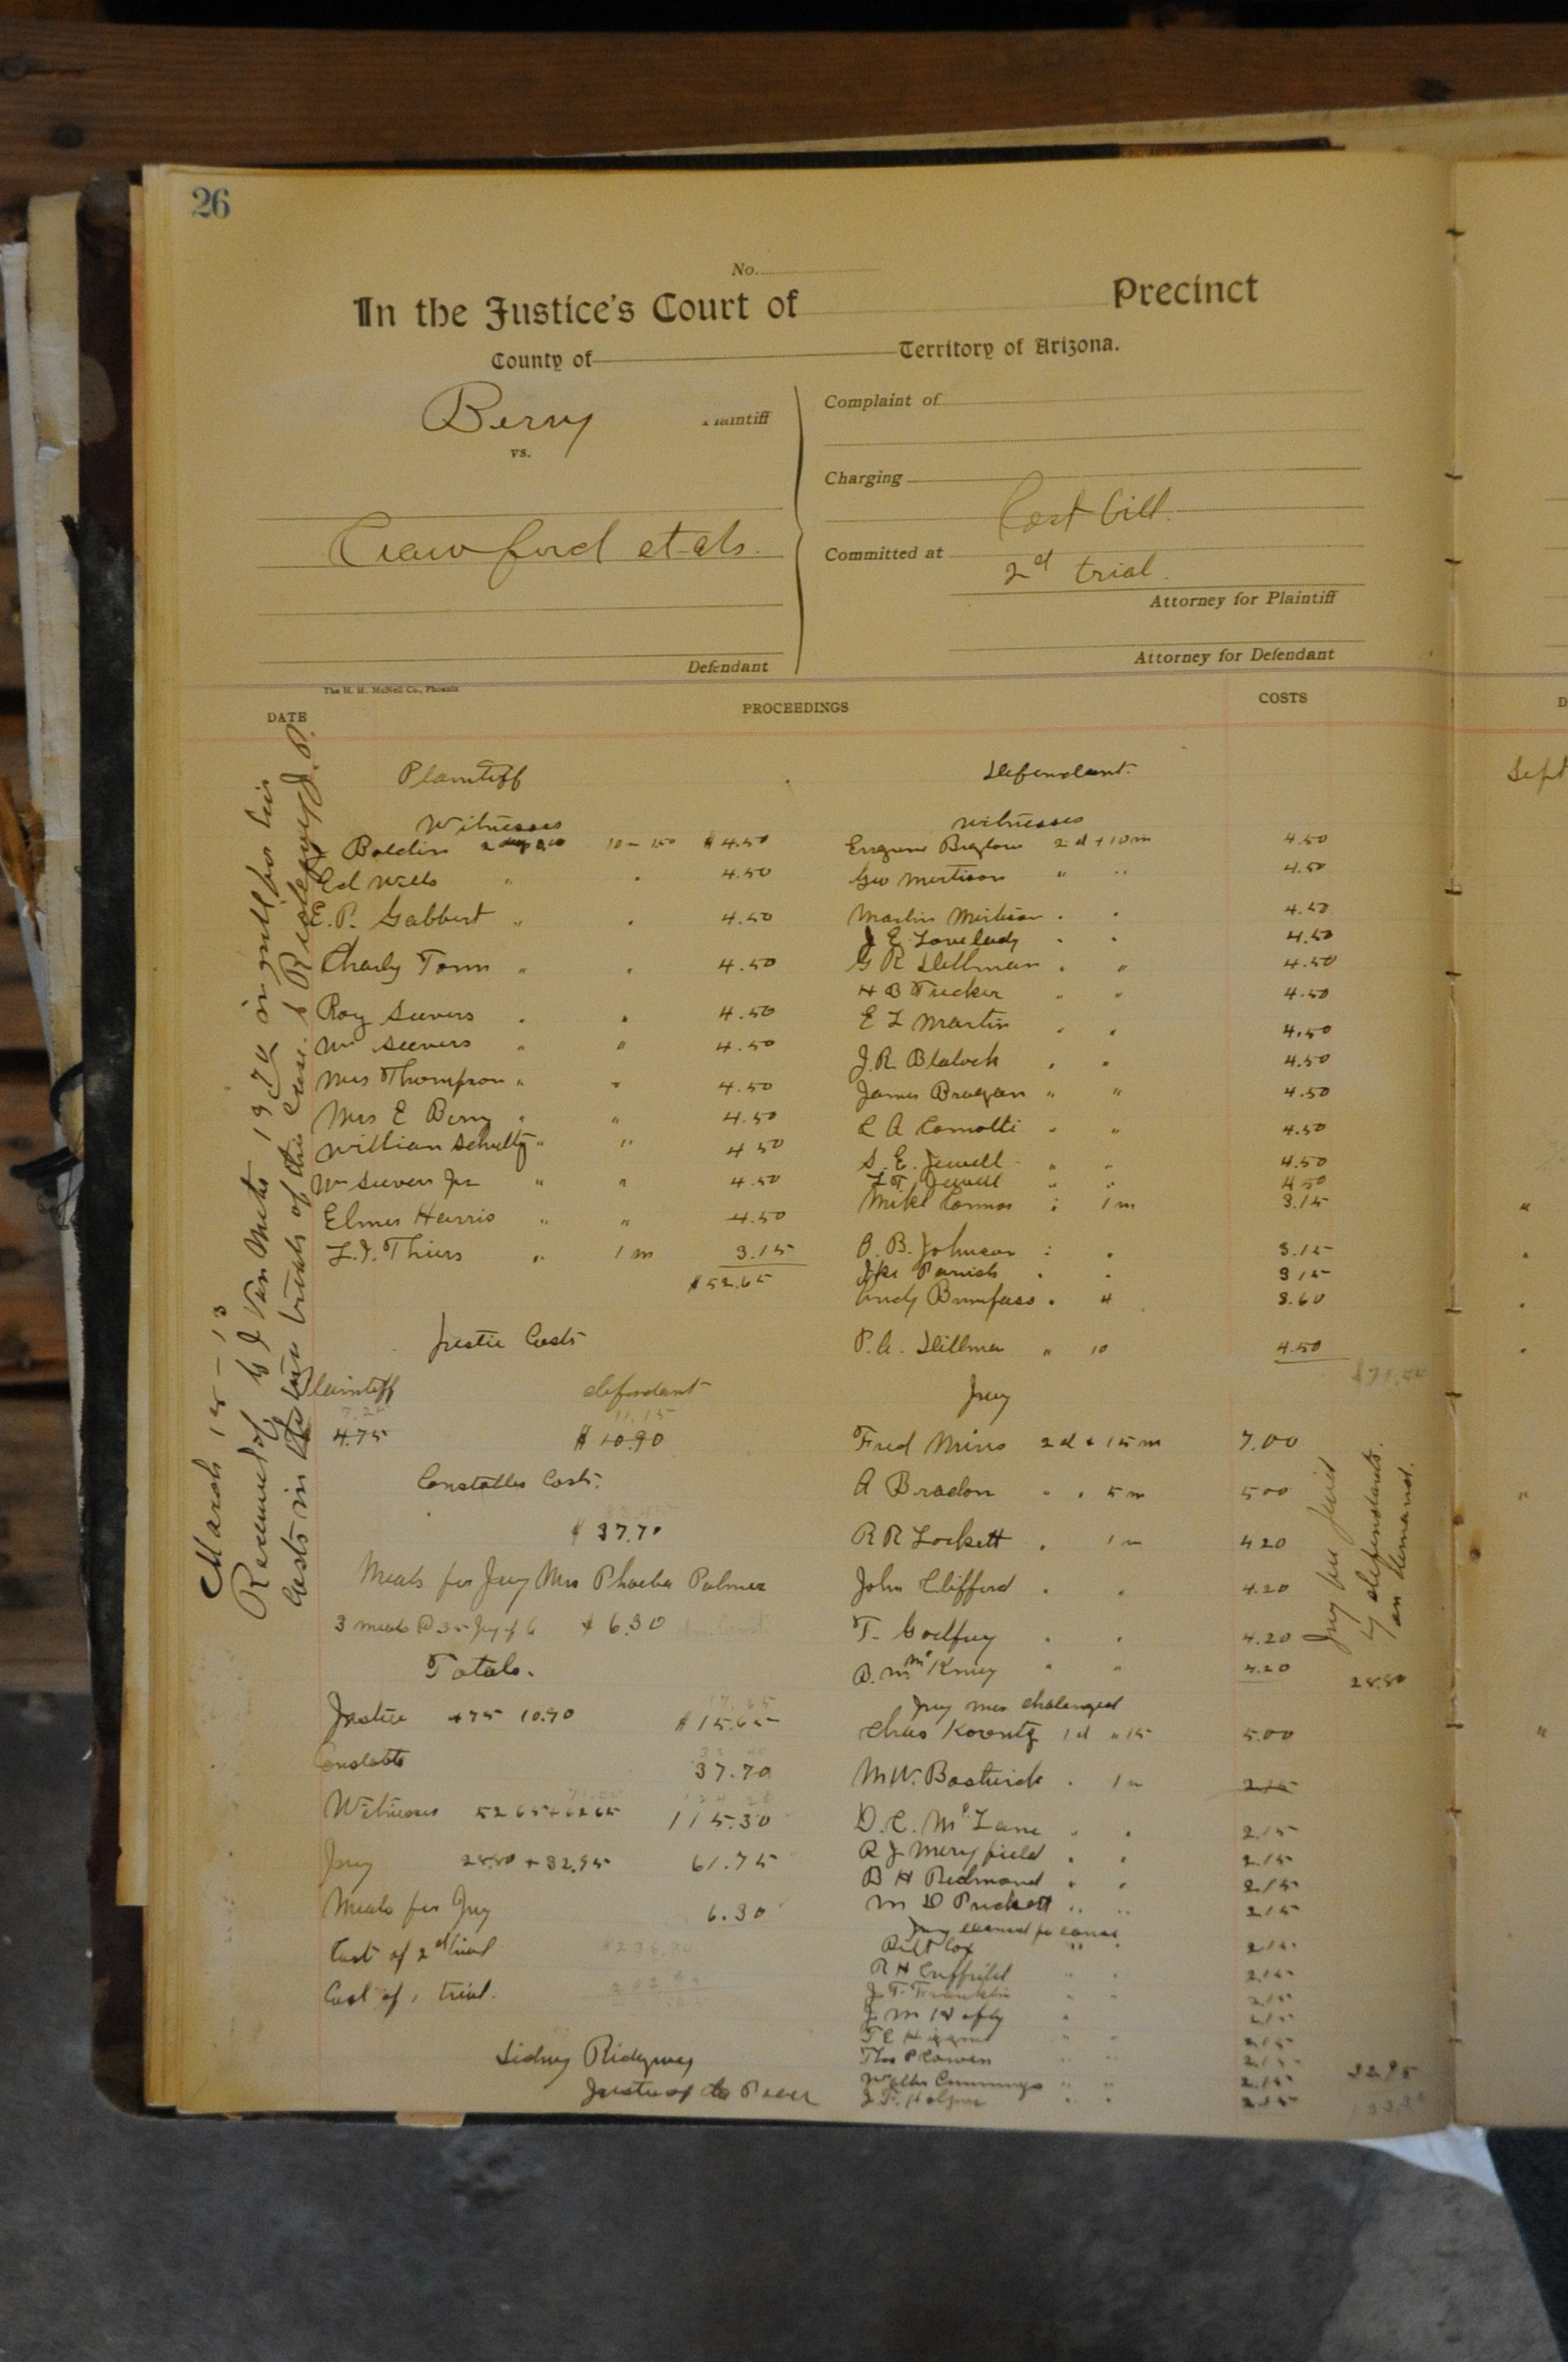 26
No.
In the Justice's Court of Precinct
County of Territory of Arizona.
Berry Plaintiff
vs.
Crawford et als.
Defendant
Complaint of
Charging
Cost bill.
Committed at
2d trial.
Attorney for Plaintiff
Attorney for Defendant
The H. H. McNeil Co., Phoenix
DATE PROCEEDINGS COSTS
Plaintiff
Witnesses
Boldin 2 days 10 - $4.50
Ed Wells " " 4.50
E. P. Gabbert " " 4.50
Charly Tonn " " 4.50
Roy Seevers " " 4.50
Wm Seevers " " 4.50
Mrs Thompson " " 4.50
Mrs E Berry " " 4.50
William Schultz " " 4 50
Wm Seevers Jr " " 4.50
Elmer Harris " " 4.50
L. J. Thiers " 1 m 3.15
$52.65
Justice Costs
Plaintiff defendant
7.25 11.15
4.75 $10.90
Constables Costs.
$37.70
Meals for Jury Mrs Phoeba Palmer
3 meals @ 35 Jury of 6 $6.30
Totals.
Justice 475 10.90 $15.65
Constable 37.70
Witnesses 52 65 + 62 65 115.30
Jury 28.80 + 32.95 61.75
Meals for Jury 6.30
Cost of 2d trial
Cost of 1 trial.
Sidney Ridgway
Justice of the Peace
Defendant.
Witnesses
Eugene Biglow 2 d + 10 m 4.50
Geo Mortison " " 4.50
Martin Mortison " " 4.50
J E Lovelady " " 4.50
G R Dillman " " 4.50
H B Tucker " " 4.50
E L Martin " " 4.50
J. R. Blalock " " 4.50
James Bragan " " 4.50
C A Comotti " " 4.50
S. E. Jewell " " 4.50
L T. Jewell " " 4 50
Mike Connor " 1 m 3.15
O. B. Johnson " " 3.15
Ike Parrish " " 3 15
Andy Bumpass " 4 3.60
P. A. Dillman " 10 4.50
Jury
Fred Mims 2 d + 15 m 7.00
A Bradon " " 5 m 5 00
R R Lockett " 1 m 4 20
John Clifford " " 4.20
T. Godfrey " " 4.20
B. McKinney " " 4.20
28.80
Jury men chalenged
Chas Koontz 1 d " 15 5.00
M W. Bostwick " 1 m 2.15
D. C. McLane " " 2.15
R J Meryfield " " 2.15
B H Redmond " " 2.15
M D Puckett " " 2.15
Jury excused for cause
Bill Cox " " 2.15
R H 2.15
J. T. Franklin " " 2.15
J M 2.15
T C 2.15
Thos P Cowen " " 2.15
Walter Cummings " " 2.15
J. F. 2.15
32.95
Jury fee
by defendants.
on demand.
March 15 - 13
Received of J Van Meter in full for his
Costs in the two trials of this case. S Ridgway J. P.
Sept